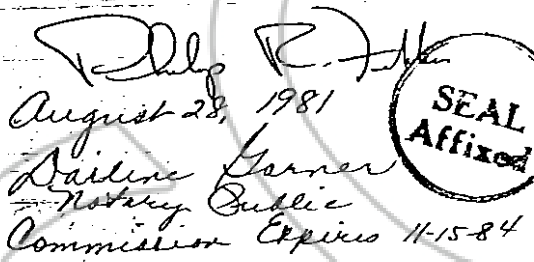 Philip R.
August 28, 1981
SEAL
Affixed
Darline Garner
Notary Public
Commission Expires 11-15-84